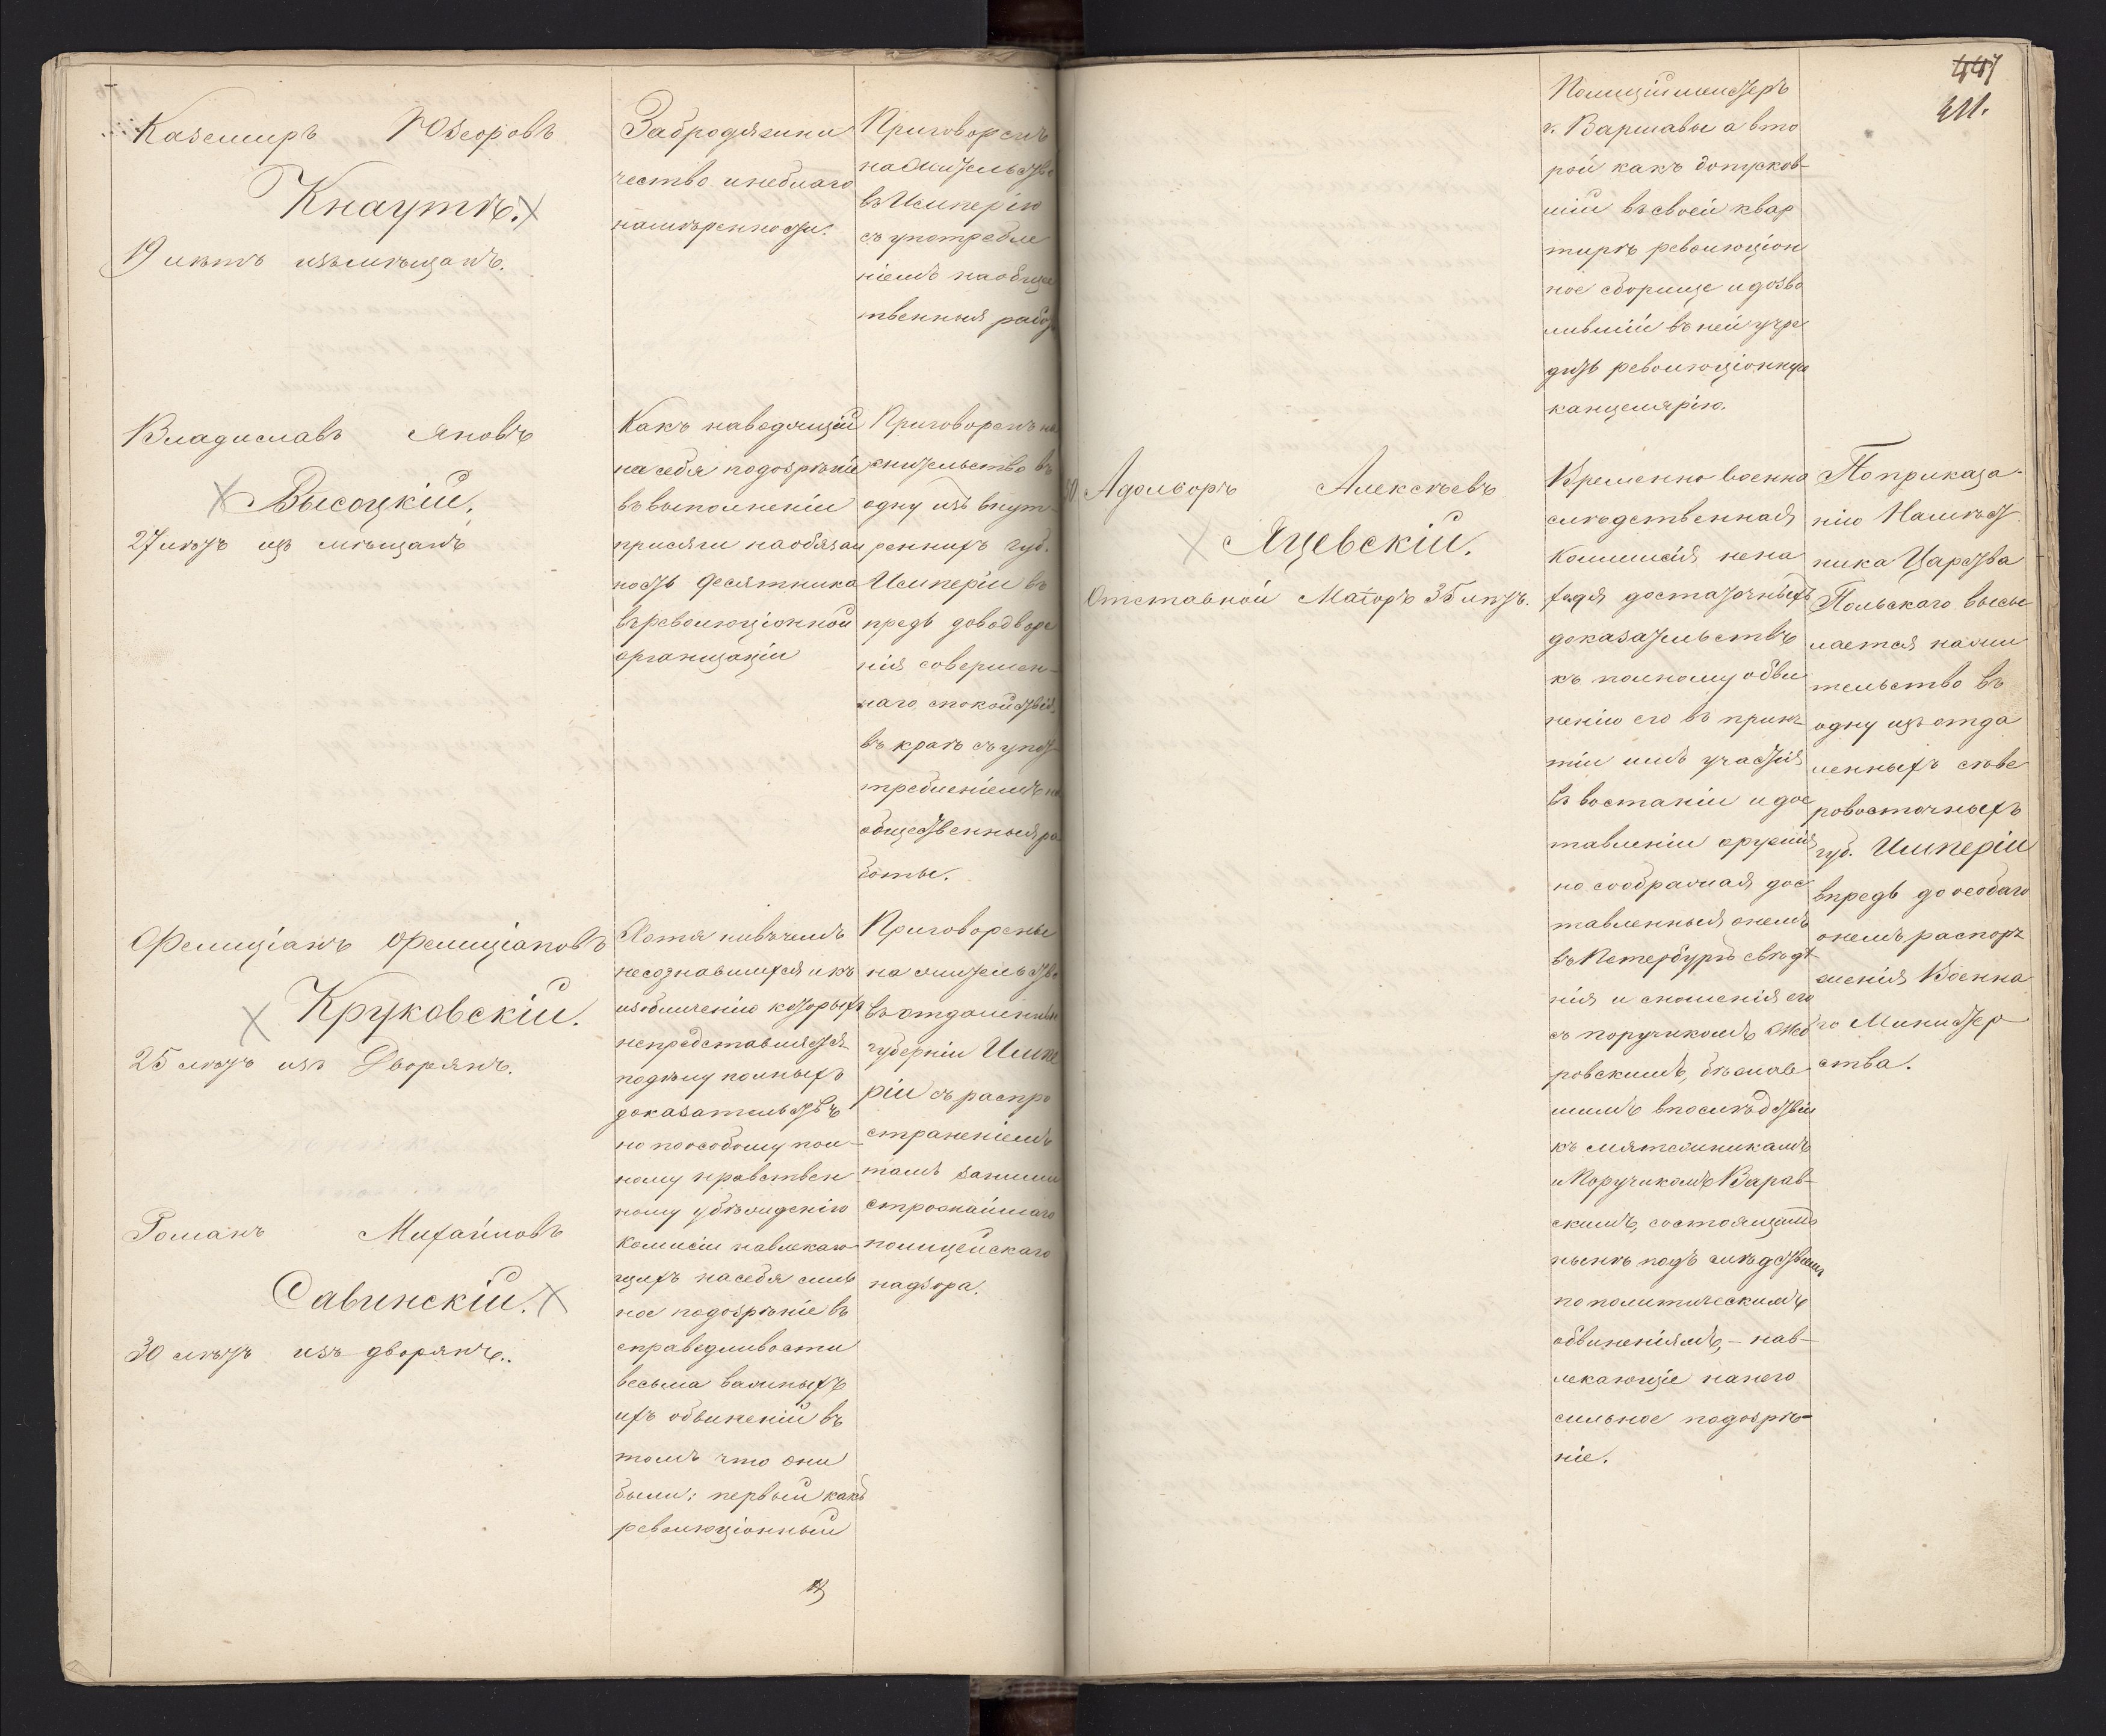 Каземиръ Юзефовъ
Кнаутъ.
19 лѣтъ изъ мѣщанъ.
За бродяжни
чество и неблаго
намѣренности.
Приговоренъ
на жительство
въ Имперію
съ употребле
ніемъ на обще
твенныя работ
Владиславъ Яновъ
Высоцкій.
27 лѣтъ изъ мѣщанъ
Какъ наводящій
на себя подозрѣніе
въ выполненіи
присяги на обязан
ность десятника
въ революціонной
организаціи
Приговоренъ на
жительство въ
одну изъ внут-
реннихъ губ.
Имперіи въ
предь до водворе
нія совершен-
наго спокойствія
въ краѣ съ упот-
требленіемъ на
общественныя ра
боты.
Фелиціанъ Фелиціановъ
Круковскій.
25 лѣтъ изъ Дворянъ.
Романъ Михайловъ
Савинскій.
30 лѣтъ изъ дворянъ.
Хотя ни въ чемъ
несознавшихся и къ
изобличенію которыхъ
непредставляется
подъму полныхъ
доказательствъ
но по особому пол-
ному нравствен
ному убѣжденію
Комисіи навлекаю-
щихъ на себя силь
ное подозрѣніе въ
справедливости
весьма важныхъ
ихъ обвиненій въ
томъ что они
были: первый какъ
революціонный
Приговорены
на жительство
въ отдаленныя
губерніи Импе
ріи съ распро
страненіемъ
тамъ за ними
строжайшаго
полицейскаго
надзора.
447
411.
Полиціймейстеръ
г. Варшавы а вто
рой какъ допускав-
шій въ своей квар
тирѣ революціон
ное сборище и дозво
лившій въ ней учре
дить революціонную
канцелярію.
Адольфъ Алексѣевъ
Яцевскій.
Отставной Маіоръ 35 лѣтъ.
Временно военно
слѣдственная
Коммисія нена
ходя достаточныхъ
доказательствъ
къ полному обви
ненію его въ приня
тіи имъ участія
въ востаніи и дос
тавленіи оружія
но соображая дос
тавленныя онемъ
въ Петербургѣ свѣдѣ
нія и сношенія его
съ поручикомъ Жеб
ровскимъ, бѣжав
шимъ впослѣдствіи
къ мятежникамъ
и Поручикомъ Варав-
скимъ, состоящимъ
нынѣ подъ слѣдствіемъ
по политическимъ
обвиненіямъ,- нав-
лекающіе на него
сильное подозрѣ-
ніе.
По приказа-
нію Намѣст
ника Царства
Польскаго высы
лается на жи
тельство въ
одну изъ отда
ленныхъ сѣве
ровосточныхъ
губ. Имперіи
впредь до особаго
онемъ распоря
женія Военна
го Министер
ства.